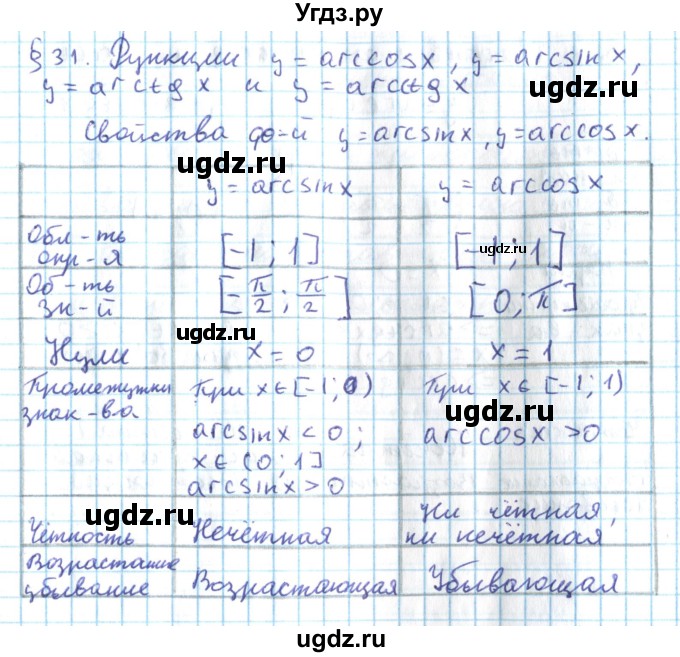 Угдз.ру
§ 31. Функции y = arccosx, y = arcsinx,
y = arctgx и y = arcctgx
ugdz.ru
Свойства ф-й y = arcsinx, y = arccosx.
ugdz.ru
y = arcsinx y = arccosx
Обл-ть
опр-я
[-1; 1] [-1; 1]
ugdz.ru
Об-ть
зн-й
[-π/2; π/2] [0; π]
ugdz.ru
Нули x = 0 x = 1
Промежутки
знак-ва
При x∈[-1; 0) При x∈[-1; 1)
ugdz.ru
arcsinx < 0; arccosx > 0
x∈(0; 1]
arcsinx > 0
ugdz.ru
Чётность Нечётная Ни чётная,
ни нечётная
ugdz.ru
Возрастание
убывание
Возрастающая Убывающая
ugdz.ru
ugdz.ru